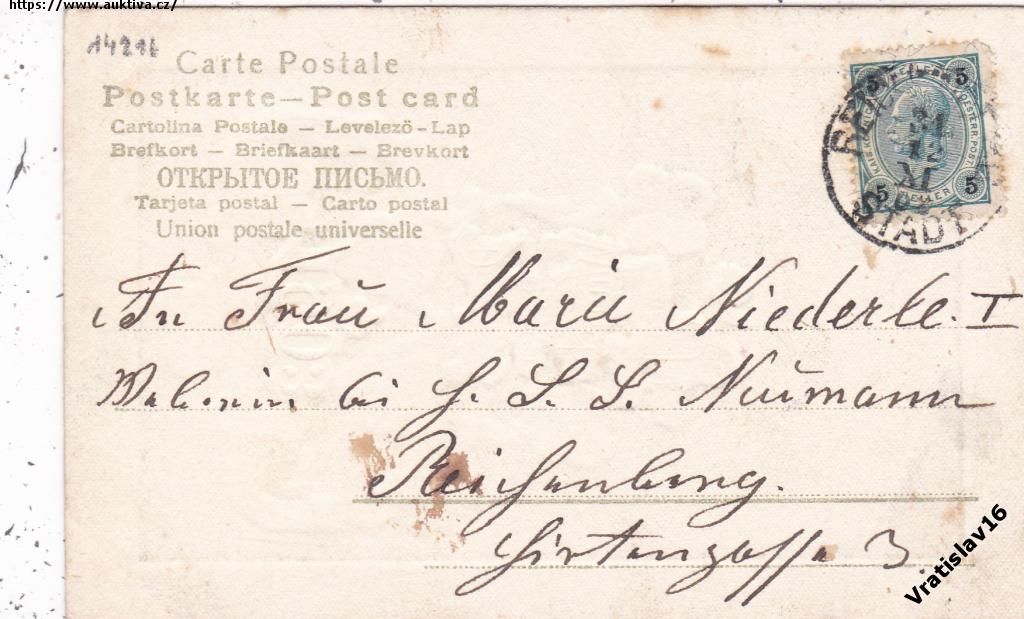 https://www.auktiva.cz/
14216
Carte Postale
Postkarte — Post card
Cartolina Postale — Levelezö-Lap
Brefkort — Briefkaart — Brevkort
ОТКРЫТОЕ ПИСЬМО.
Tarjeta postal — Carto postal
Union postale universelle
5 5
5 HELLER 5
STADT
An Frau Marie Niederle. I
bei H. L. S. Neumann
Reichenberg.
Hirtengasse 3.
Vratislav16